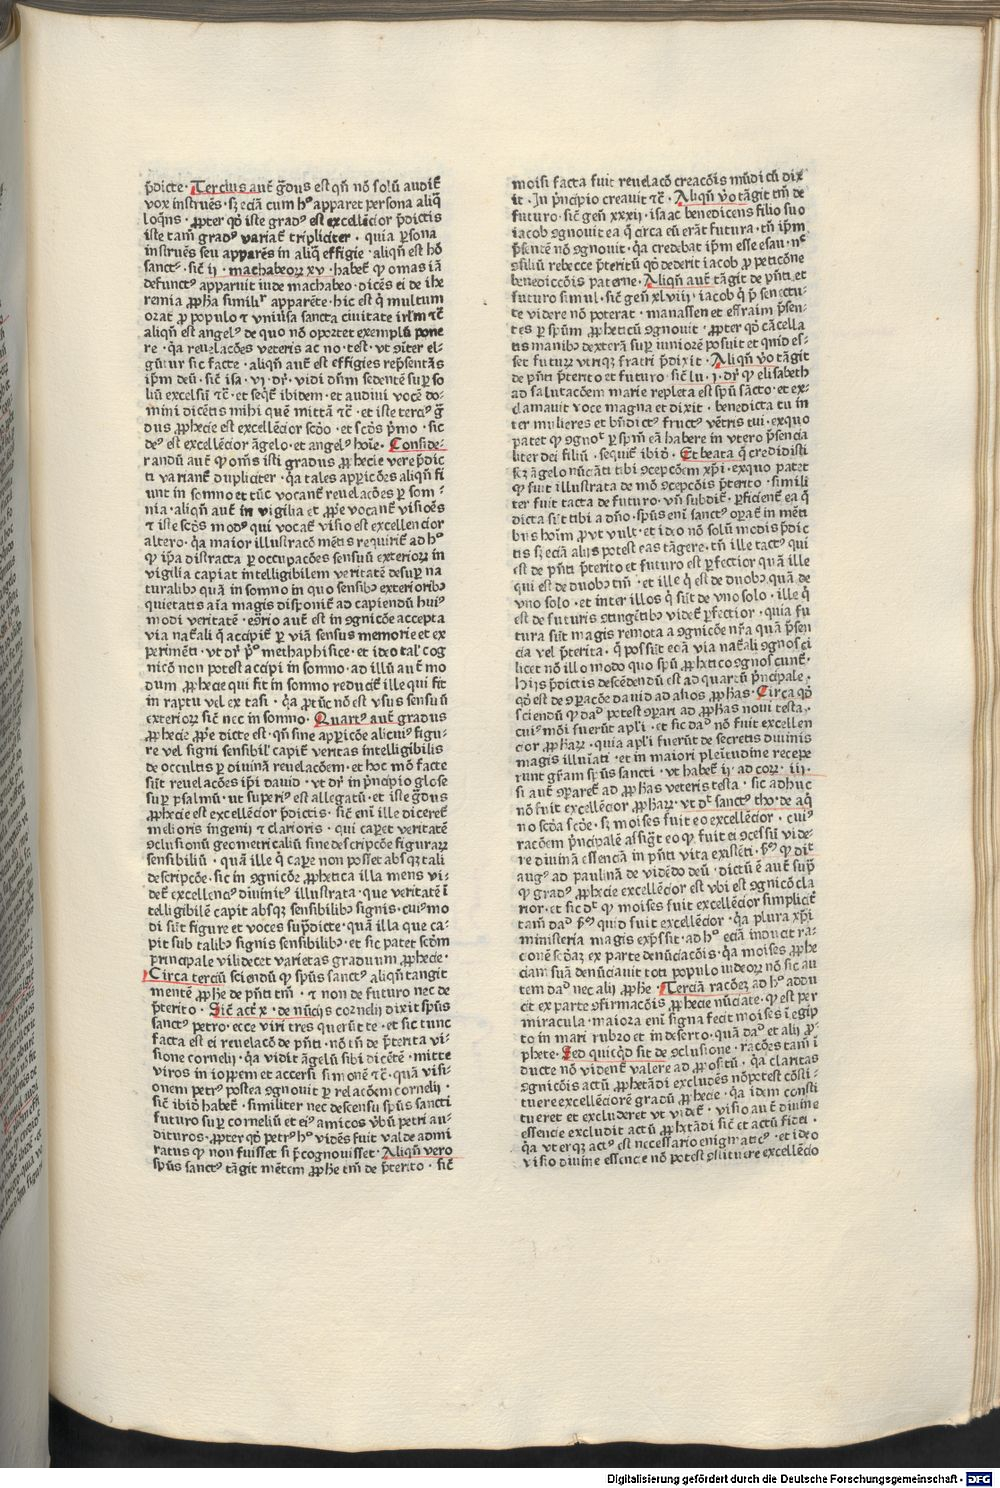 p̄dicte · Tercius aut̄ g̃dus est qn̄ nō solū audit̄
vox instruēs · sʒ eciā cum hº apparet persona aliq̄
loq̄ns · ꝓpter qō iste gradꝰ est excellēcior p̄dictis
iste tam̄ gradꝰ variat̄ tripliciter · quia ꝑsona
instruēs seu apparēs in aliq̄ effigie · aliqn̄ est hō
sanctꝰ · sic̄ ii · machabeoꝝ xv · habet̄ ꝙ omas iā
defunctꝰ apparuit iude machabeo · dicēs ei de ihe
remia ꝓpħa similiʳ apparēte · hic est q̄ multum
orat ꝓ populo ⁊ vniūsa sancta ciuitate irlm̄ ⁊c̄
aliqn̄ est angelꝰ de quo nō oportet exemplū pone
re · q̇a reuelacōes veteris ac no · test · vt ꝯīter el⸗
gūtur sic facte · aliqn̄ aut̄ est effigies rep̄sentās
ip̄m deū · sic̄ isa · vi · dr̄ · vidi dn̄m sedentē suꝑ so
liū excelsū ⁊c̄ · et seqt̄ ibidem · et audiui vocē do⸗
mini dicētis mihi quē mittā ⁊c̄ · et iste terciꝰ g̃
dus ꝓphecie est excellēcior scd̄o · et scd̄s p̄mo · sic
deꝰ est excellēcior āgelo · et angelꝰ hoīe · Conside⸗
randū aut̄ ꝙ om̄s isti gradus ꝓphecie vere p̄dic
ti variant̄ dupliciter · q̇a tales apꝑicōes aliqn̄ fi
unt in somno et tūc vocant̄ reuelacōes ꝑ som⸗
nia · aliqn̄ aut̄ in vigilia et ꝓp̄e vocant̄ visiōes
⁊ iste scd̄s modꝰ qui vocat̄ visio est excellencior
altero · q̇a maior illustracō mētis requirit̄ ad hº
ꝙ ip̄a distracta ꝑ occupacōes sensuū exterioꝝ in
vigilia capiat intelligibilem veritatē desuꝑ na
turalibꝰ quā in somno in quo sensibꝰ exterioribꝰ
quietatis aīa magis disponit̄ ad capiendū huiꝰ
modi veritatē · eq̄rio aut̄ est in ꝯgnicōe accepta
via nat̄ali q̄ accipit̄ ꝑ viā sensus memorie et ex
perimēti · vt dr̄ pº methaphisice · et ideo tał cog
nicō non potest accipi in somno · ad illū aut̄ mo
dum ꝓphecie qui fit in somno reducit̄ ille qui fit
in raptu vel extasi · q̇a ꝑ tūc nō est vsus sensuū
exterioꝝ sic̄ nec in somno · Quartꝰ aut̄ gradus
ꝓphecie ꝓp̄e dicte est · qn̄ sine apꝑicōe alicuiꝰ figu⸗
re vel signi sensibił capit̄ veritas intelligibilis
de occultis ꝑ diuinā reuelacōem · et hoc mō facte
sūt reuelacōes ip̄i dauid · vt dr̄ in p̄ncipio glose
suꝑ psalmū · ut superiꝰ est allegatū · et iste g̃dus
ꝓphecie est excellēcior p̄dictis · sic̄ enī ille diceret̄
melioris ingenij ⁊ clarioris · qui caꝑet veritatē
ꝯclusionū geometricaliū sine descripcōe figuraꝝ
sensibiliū · quā ille q̄ caꝑe non posset absqʒ tali
descripcōe · sic in ꝯgnicōe ꝓphetica illa mens vi⸗
det̄ excellenciꝰ diuinitꝰ illustrata · que veritatē ī
telligibilē capit absqʒ sensibilibꝰ signis · cuiꝰmo
di sūt figure et voces sup̄dicte · quā illa que ca⸗
pit sub talibꝰ signis sensibilibꝰ · et sic patet scd̄m
principale vilidecet varietas graduum ꝓphecie ·
Circa terciū sciendū ꝙ sp̄us sanctꝰ aliqn̄ tangit
mentē ꝓphe de p̄nti tm̄ · ⁊ non de futuro nec de
p̄terito · Sic̄ act̄ x · de nūcijs cornelij dixit sp̄us
sanctꝰ petro · ecce viri tres querūt te · et sic tunc
facta est ei reuelacō de p̄nti · nō tn̄ de p̄terita vi⸗
sione cornelij · q̇a vidit āgelū sibi dicētē · mitte
viros in ioppem et accersi simonē ⁊c̄ · quā visi⸗
onem petrꝰ postea ꝯgnouit ꝑ relacōem cornelij ·
sic̄ ibid̄ habet̄ · similiter nec descensū sp̄us sancti
futuro suꝑ corneliū et eiꝰ amicos v̄bū petri au⸗
dituros · ꝓpter qō petrꝰ hº vidēs fuit valde admi
ratus ꝙ non fuisset si p̄cognouisset · Aliqn̄ vero
sp̄us sanctꝰ tāgit mētem ꝓphe tm̄ de p̄terito · sic̄
moisi facta fuit reuelacō creacōis mūdi cū dix
it · In p̄ncipio creauit ⁊c̄ · Aliqn̄ v̄o tāgit tm̄ de
futuro · sic̄ gen̄ xxxij · isaac benedicens filio suo
iacob ꝯgnouit ea q̄ circa eū erāt futura · tn̄ ip̄m
p̄sentē nō ꝯgnouit · q̇a credebat ip̄m esse esau · nᶜ
ꝯsiliū rebecce p̄teritū qō dederit iacob ꝓ peticōne
benediccōis paterne · Aliqn̄ aut̄ tāgit de p̄nti et
futuro simul · sic̄ gen̄ xlviij · iacob q̄ p̄ senectu⸗
te videre nō poterat · manassen et effraim p̄sen⸗
tes ꝑ sp̄um ꝓpheticū ꝯgnouit · ꝓpter qō cācella
tis manibꝰ dexterā suꝑ iuniorē posuit et quid es⸗
set futuꝝ vtriqʒ fratri p̄dixit · Aliqn̄ v̄o tāgit
de p̄nti p̄terito et futuro · sic̄ lu · i · dr̄ ꝙ elisabeth
ad salutacōem marie repleta est sp̄u sācto · et ex⸗
clamauit voce magna et dixit · benedicta tu in
ter mulieres et bn̄dictꝰ fructꝰ vētris tui · ex quo
patet ꝙ ꝯgnoᵗ ꝑ sp̄m eā habere in vtero p̄sencia
liter dei filiū · sequit̄ ibid̄ · Et beata q̄ credidisti
scʒ āgelo nūciāti tibi ꝯcepcōem xp̄i · ex quo patet
ꝙ fuit illustrata de mō ꝯcepcōis p̄terito · simili
ter fuit tacta de futuro · vn̄ subdit̄ · ꝑficient̄ ea q̄
dicta sūt tibi a dn̄o · sp̄us enī sanctꝰ oꝑat̄ in mēti
bus hoīm ꝓ vt vult · et ideo nō solū modis p̄dic
tis sʒ eciā alijs potest eas tāgere · tn̄ ille tactꝰ qui
est de p̄nti p̄terito et futuro est ꝑfectior quā ille
qui est de duobꝰ tm̄ · et ille q̄ est de duobꝰ quā de
vno solo · et inter illos q̄ sūt de vno solo · ille q̄
est de futuris ꝯtingētibꝰ videt̄ ꝑfectior · quia fu
tura sūt magis remota a ꝯgnicōe nr̄a quā p̄sen
cia vel p̄terita · q̄ possūt eciā via nat̄ali ꝯgnosci
licet nō illo modo quo sp̄u ꝓphetico ꝯgnoscunt̄ ·
Hijs p̄dictis descēdendū est ad quartū p̄ncipale ·
qō est de ꝯꝑacōe dauid ad alios ꝓphas · Circa qō
sciendū ꝙ daᵈ potest ꝯꝑari ad ꝓphas noui testa ·
cuiꝰmōi fuerūt apl̄i · et sic daᵈ nō fuit excellen
cior ꝓphaꝝ · quia apl̄i fuerūt de secretis diuinis
magis illuīati · et in maiori plenitudine recepe
runt gr̄am sp̄us sancti · vt habet̄ ij · ad coꝝ · iij ·
si aut̄ ꝯꝑaret̄ ad ꝓphas veteris testa · sic adhuc
nō fuit excellēcior ꝓphaꝝ · vt dᵗ sanctꝰ tho · de aq̄
no scd̄a scd̄e · sʒ moises fuit eo excellēcior · cuiꝰ
racōem p̄ncipalē assigᵗ eo ꝙ fuit ei ꝯcessū vide⸗
re diuinā essenciā in p̄nti vita existēti · pº ꝙ dīt
augꝰ ad paulinā de vidēdo deū · dictū ē aut̄ sup̄
ꝙ gradꝰ ꝓphecie excellēcior est vbi est ꝯgnicō cla
rior · et sic dᵗ ꝙ moises fuit excellēcior simplicit̄
tam̄ daᵈ pº quid fuit excellēcior · q̇a plura xp̄i
ministeria magis exp̄ssit · ad hº eciā inducit ra⸗
cionē scd̄aʒ ex parte denūciacōis · q̇a moises ꝓphe
ciam suā denūciauit toti populo iudeoꝝ nō sic au
tem daᵈ nec alij ꝓphe · Terciā racōeʒ ad hº addu
cit ex parte ꝯfirmacōis ꝓphecie nūciate · q̄ est per
miracula · maiora enī signa fecit moises ī egip
to in mari rubro et in deserto · quā daᵈ et alij ꝓ⸗
phete · Sed quicq̄d sit de ꝯclusione · racōes tam̄ ī
ducte nō vident̄ valere ad ꝓpositū · q̇a claritas
ꝯgnicōis actū ꝓphetādi excludēs nō potest cōsti⸗
tuere excellēciorē gradū ꝓphecie · q̇a idem consti
tueret et excluderet vt videt̄ · visio aut̄ diuine
essencie excludit actū ꝓphetādi sic̄ et actū fidei ·
q̇a vterqʒ actꝰ est necessario enigmaticꝰ · et ideo
visio diuine essencie nō potest ꝯstituere excellēcio
Digitalisierung gefördert durch die Deutsche Forschungsgemeinschaft · DFG